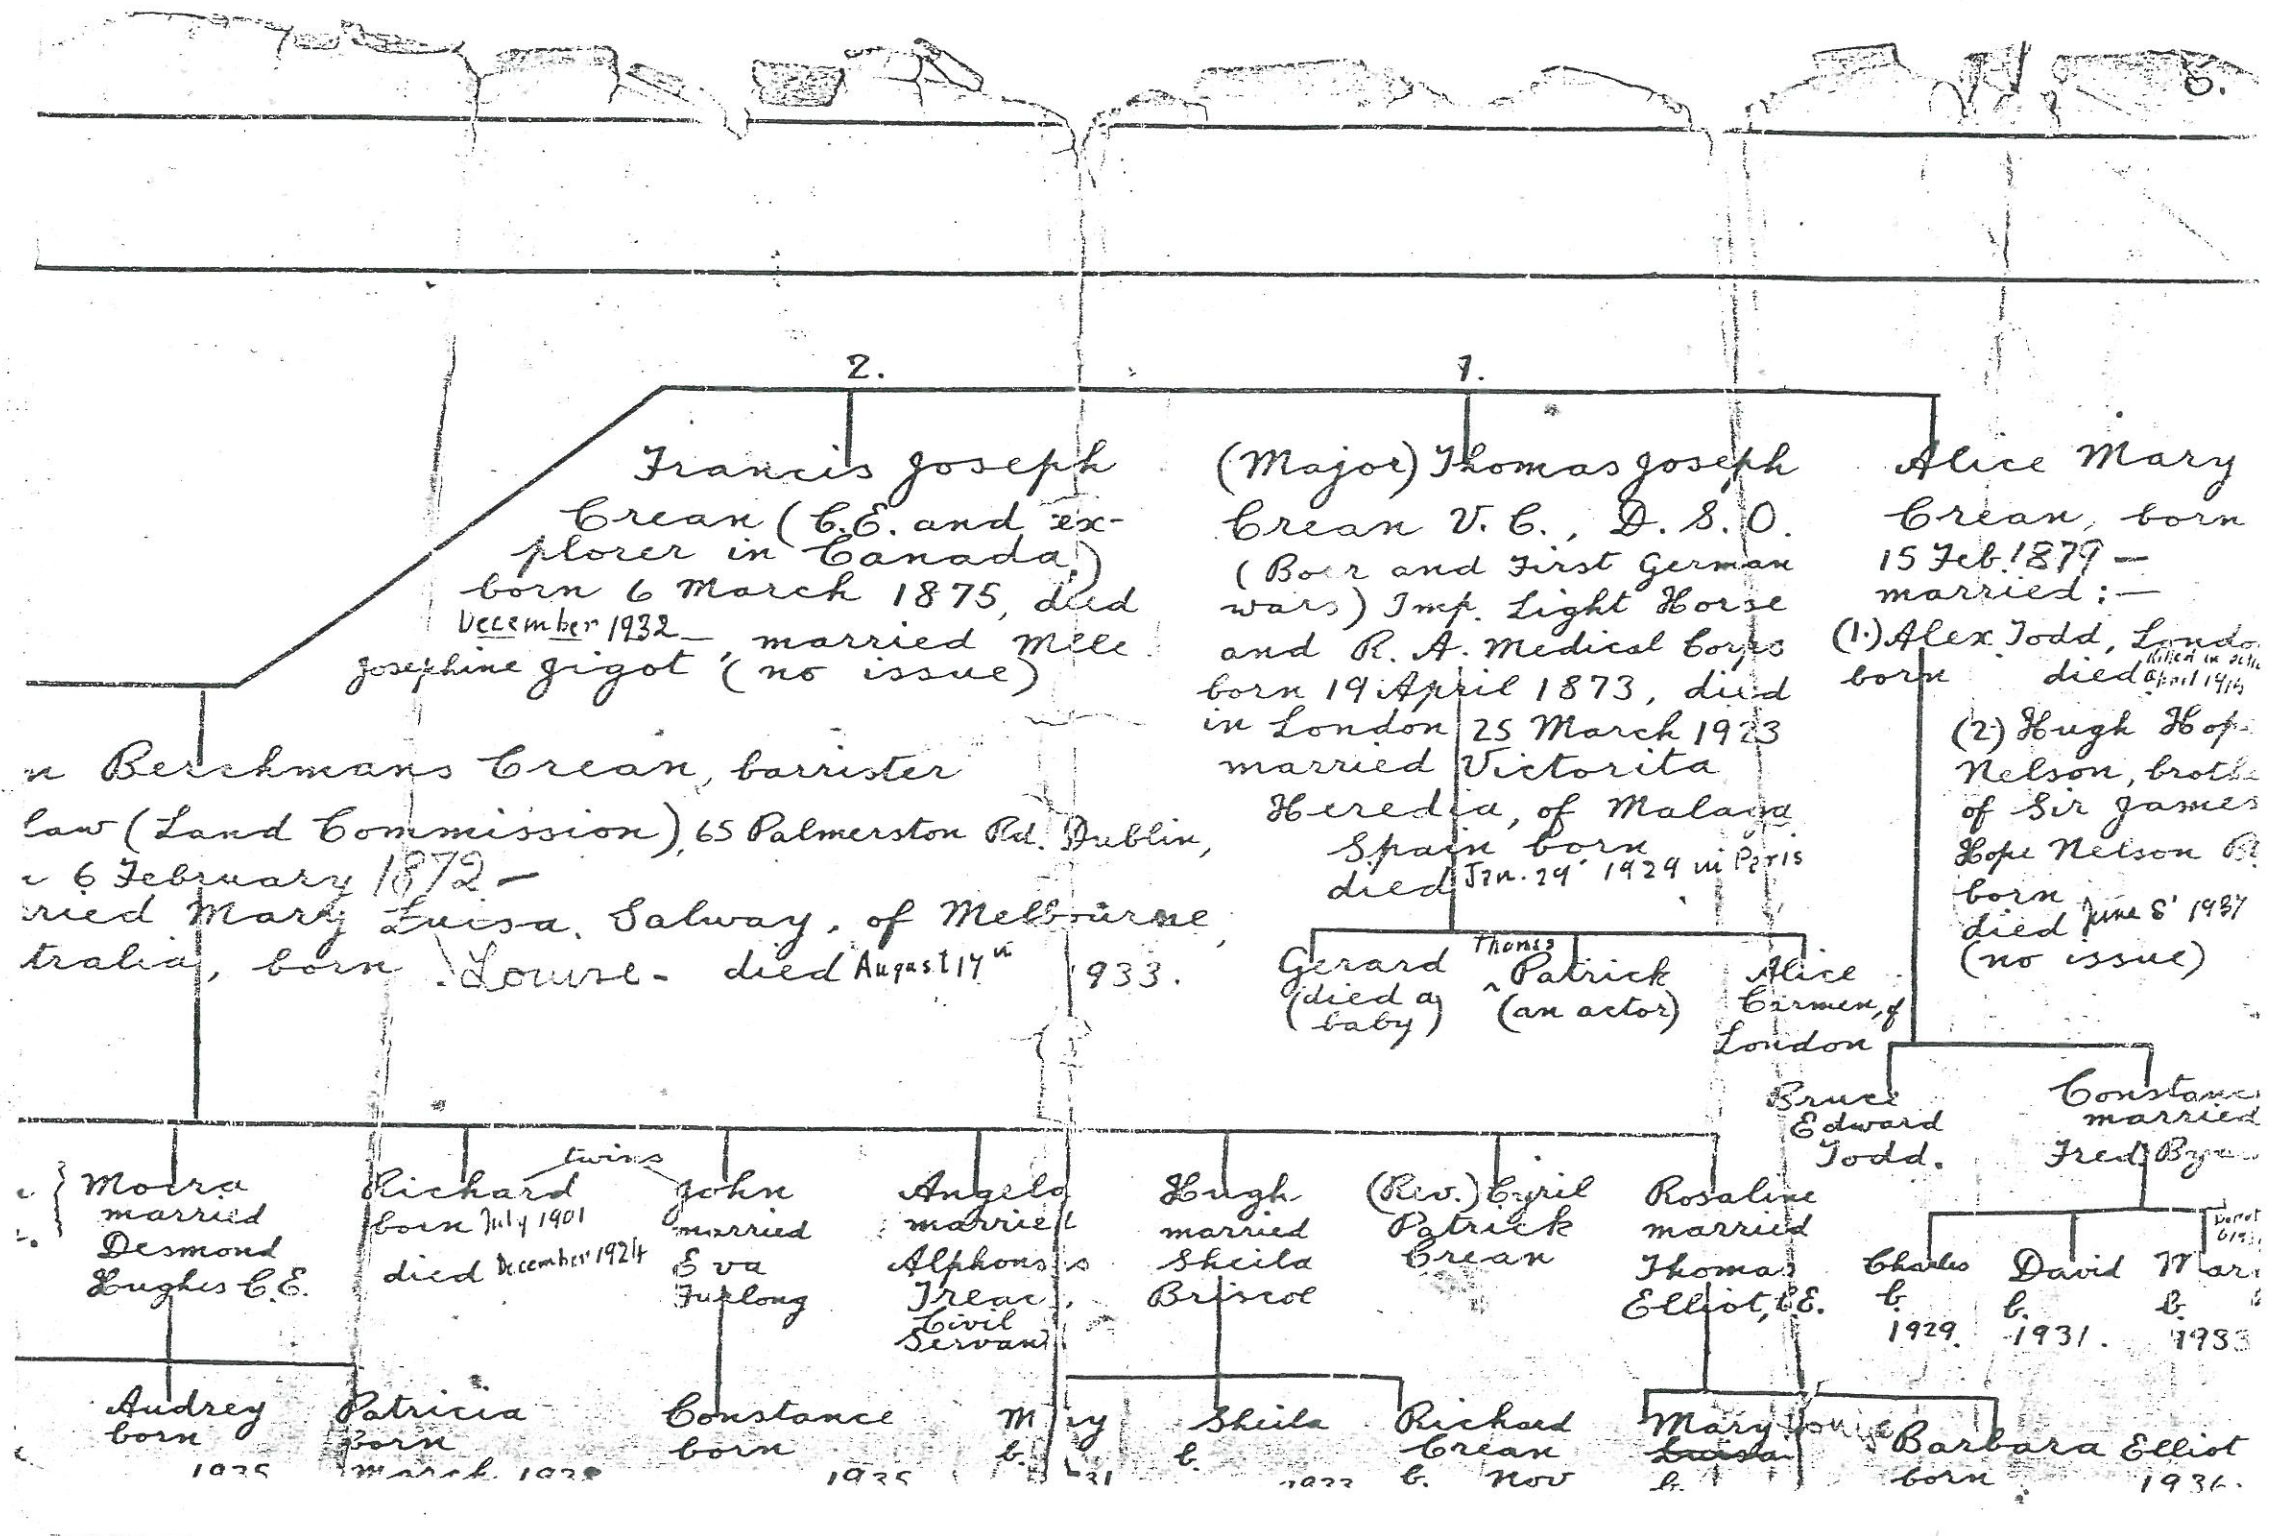 8.
2.
1.
Francis Joseph
Crean (C.E. and ex-
plorer in Canada.)
born 6 March 1875, died
December 1932 —, married Mlle
Josephine Gigot (no issue)
(Major) Thomas Joseph
Crean V. C., D. S. O.
(Boer and First German
wars) Imp. Light Horse
and R. A. Medical Corps
born 19 April 1873, died
in London 25 March 1923
married Victorita
Heredia, of Malaga
Spain born
died Jan. 29 1929 in Paris
Alice Mary
Crean, born
15 Feb. 1879 —
married : —
(1.) Alex Todd, Londo
born died killed in
April
(2) Hugh Hop
Nelson, broth
of Sir James
Hope Nelson
born
died June 8' 1937
(no issue)
n Berchmans Crean, barrister
law (Land Commission), 65 Palmerston Rd. Dublin,
6 February 1872 —
ried Mary Luisa. Salway, of Melbourne,
tralia, born Louise - died August 17th 1933.
Gerard
(died a
baby)
Thomas
^ Patrick
(an actor)
Alice
Carmen, of
London
Bruce
Edward
Todd.
Constanc
married
Fred
twins
Moira
married
Desmond
Hughes C.E.
Richard
born July 1901
died December 1924
John
married
Eva
Furlong
Angela
married
Alphonsus
Treac
Civil
Servant
Hugh
married
Sheila
Briscoe
(Rev.) Cyril
Patrick
Crean
Rosaline
married
Thomas
Elliot, C.E.
Charles
b.
1929.
David
b.
1931.
Mar
b.
1933
Audrey
born
1935
Patricia
born
March 193
Constance
born
1935
Mary
b. 31
Sheila
b.
1933
Richard
Crean
b. Nov
Mary Louise
Luisa
b.
Barbara Elliot
born 1936.